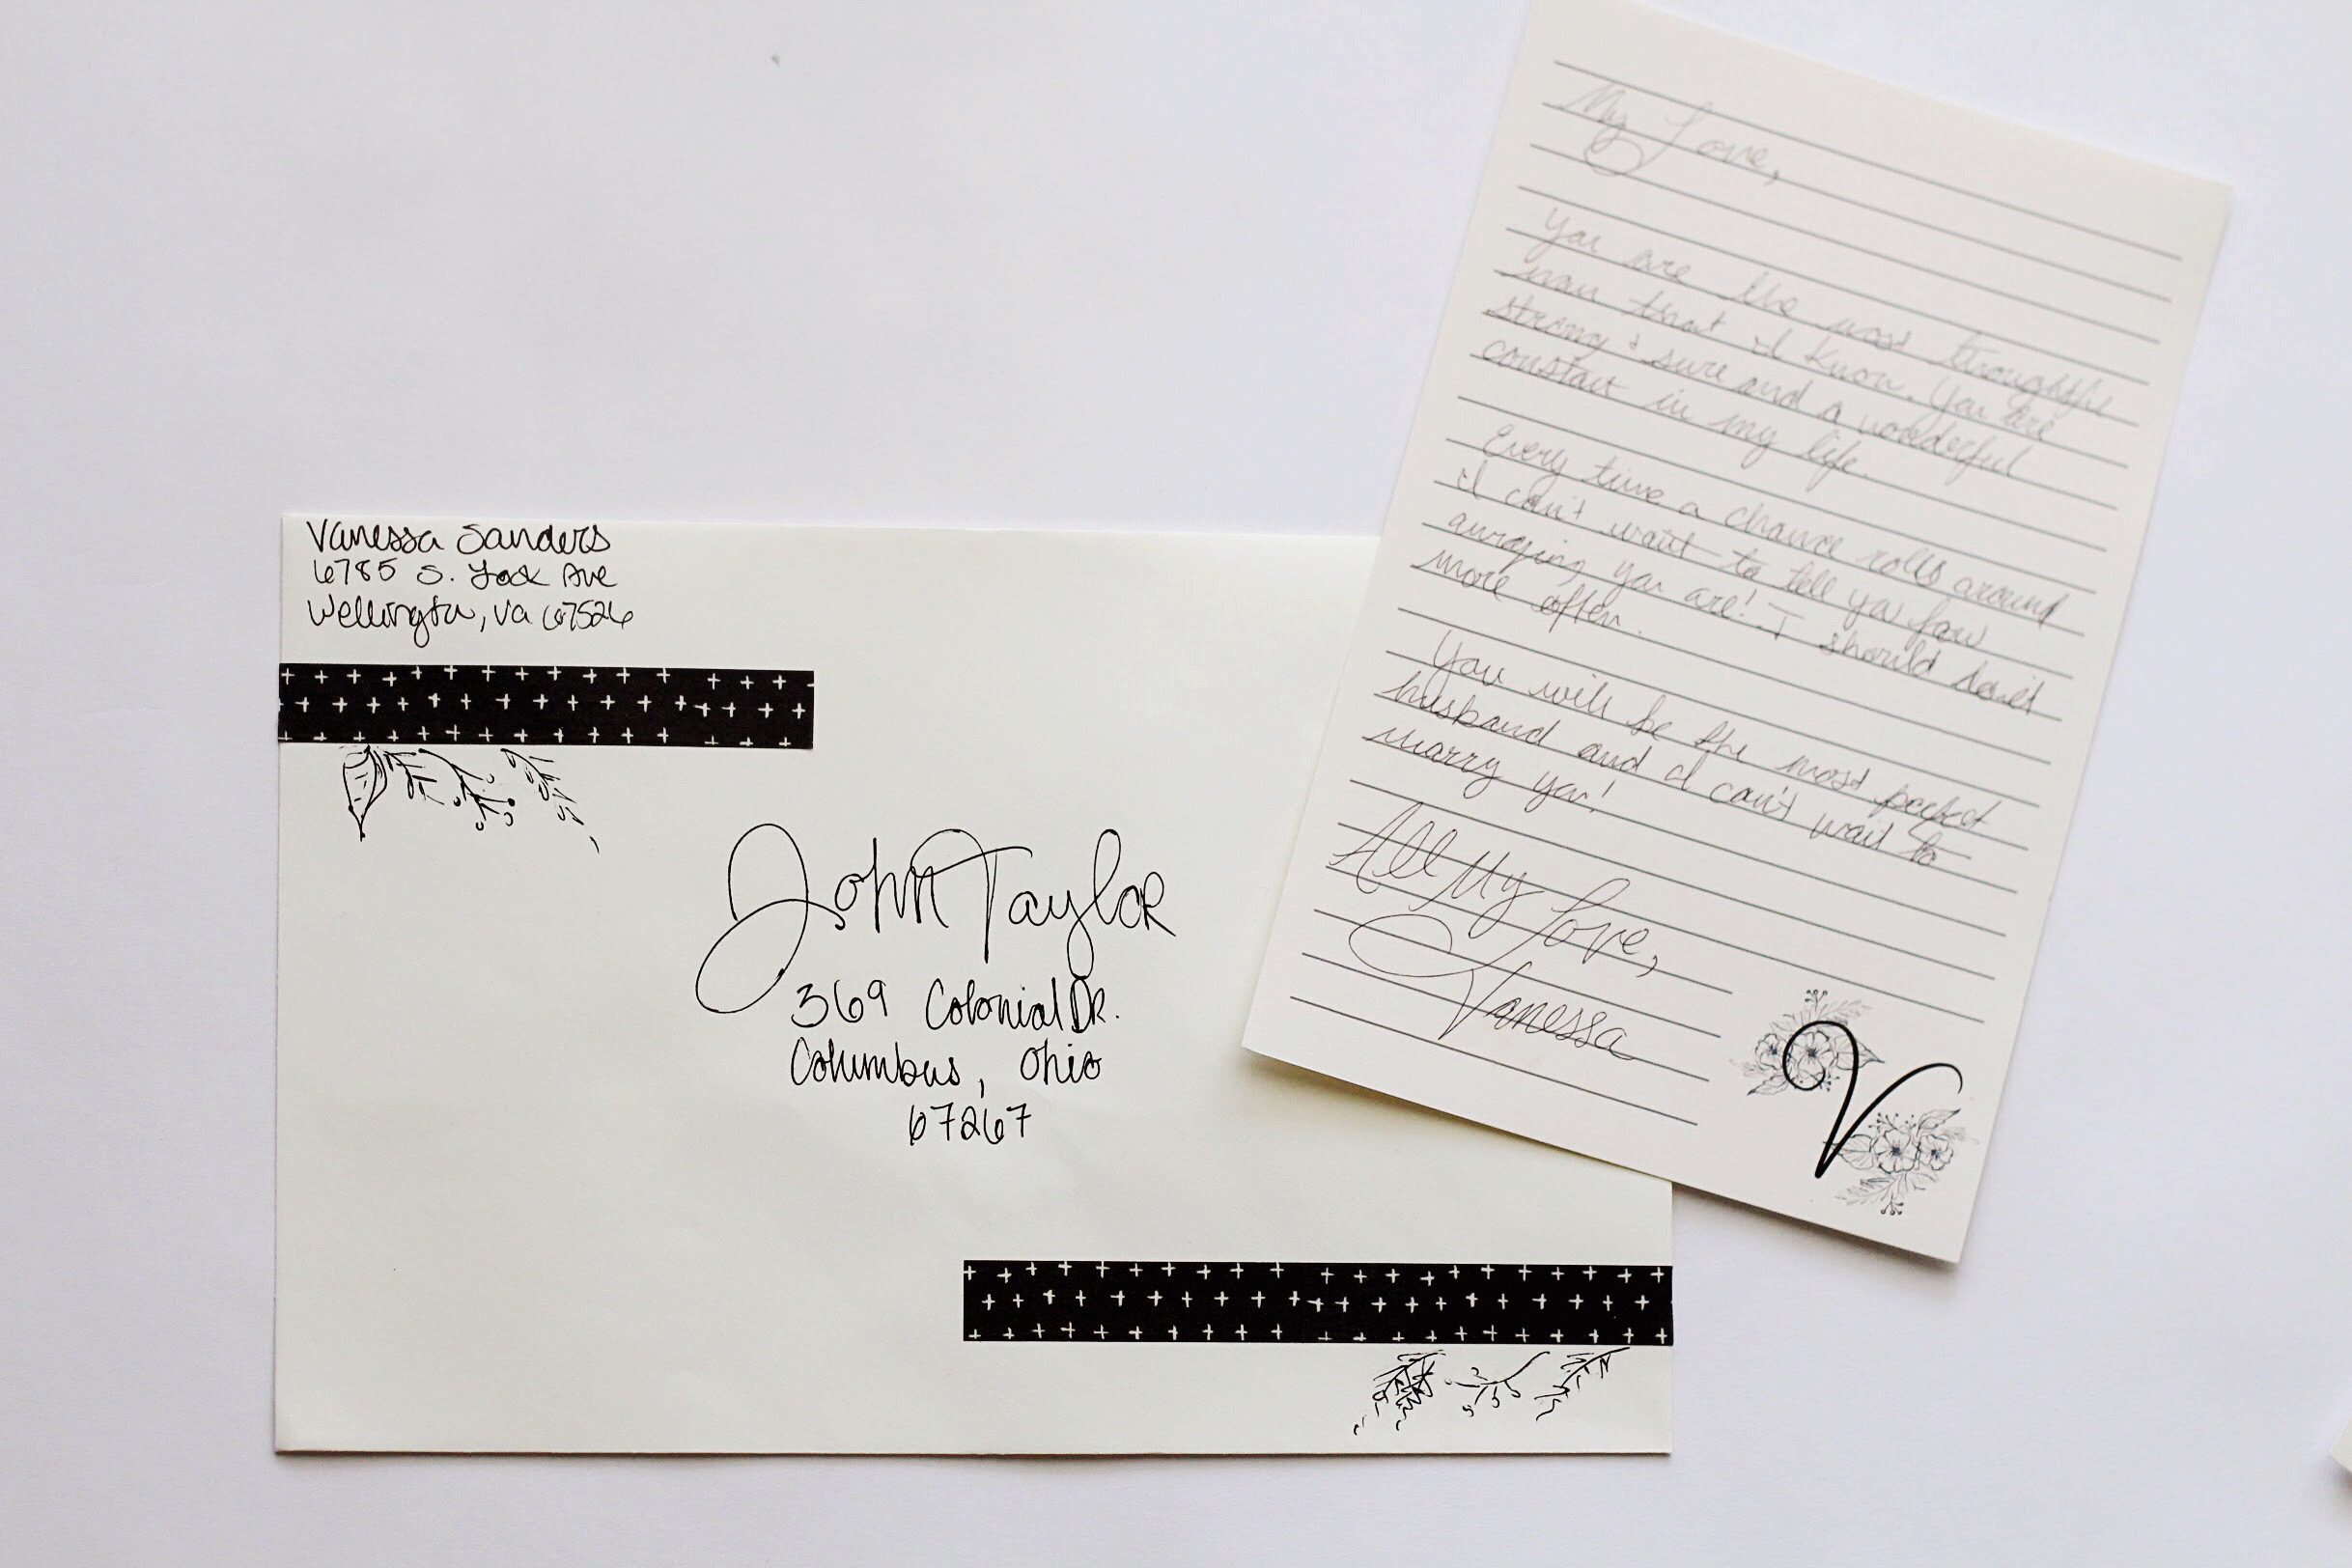 Vanessa Sanders
6785 S. York Ave
Wellington, Va 67526
John Taylor
369 Colonial DR.
Columbus, Ohio
67267
My Love,
You are the most thoughtful
man that I know. You are
strong & sure and a wonderful
constant in my life.
Every time a chance rolls around
I can't wait to tell you how
amazing you are! I should do it
more often.
You will be the most perfect
husband and I can't wait to
marry you!
All My Love,
Vanessa
V